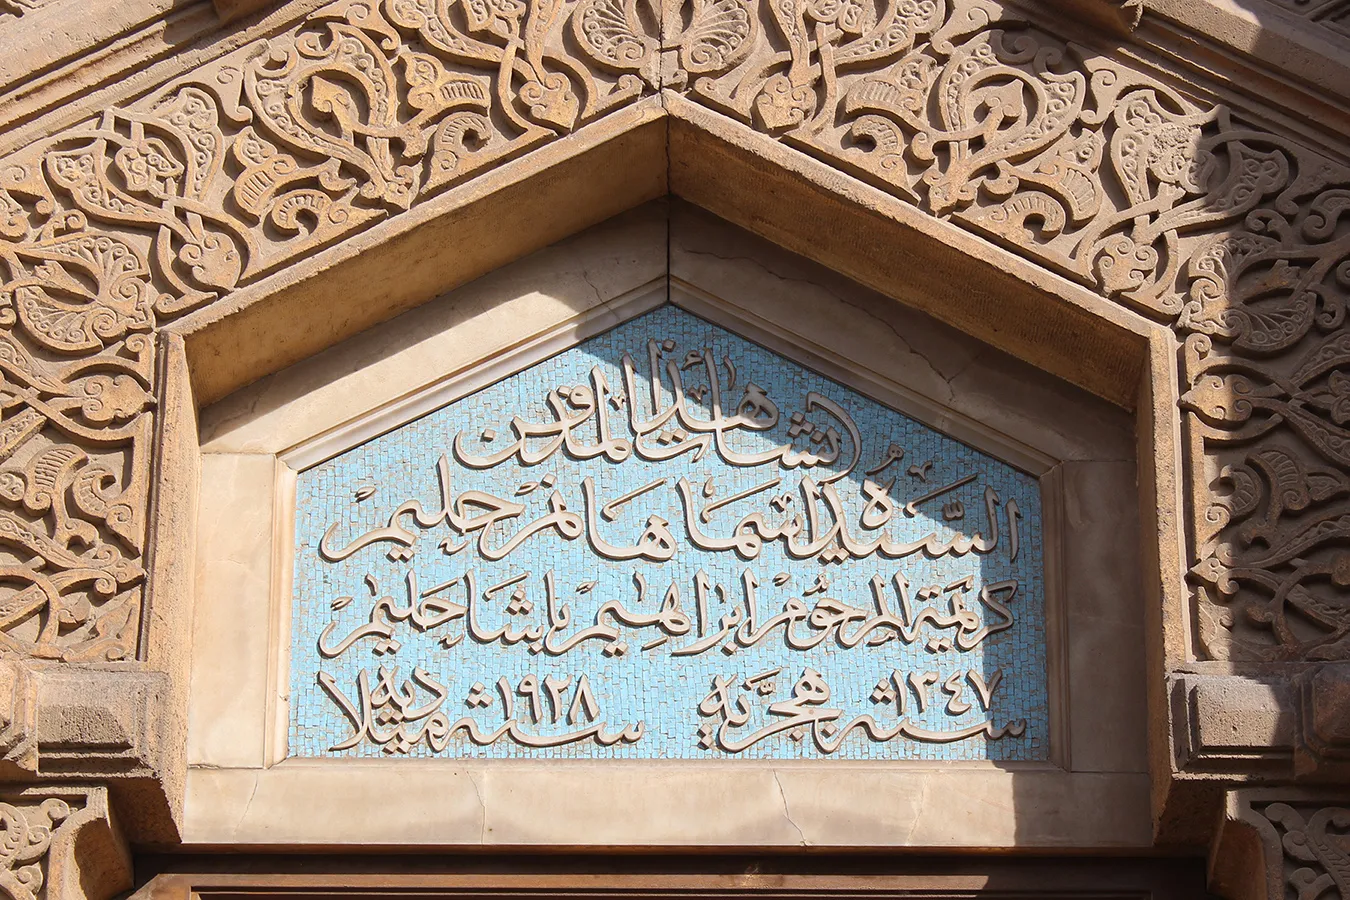 أنشأت هذا المدفن
السيدة اسما هانم حليم
كريمة المرحوم ابراهيم باشا حليم
سنة ١٣٤٧ هجرية سنة ١٩٢٨ ميلادية